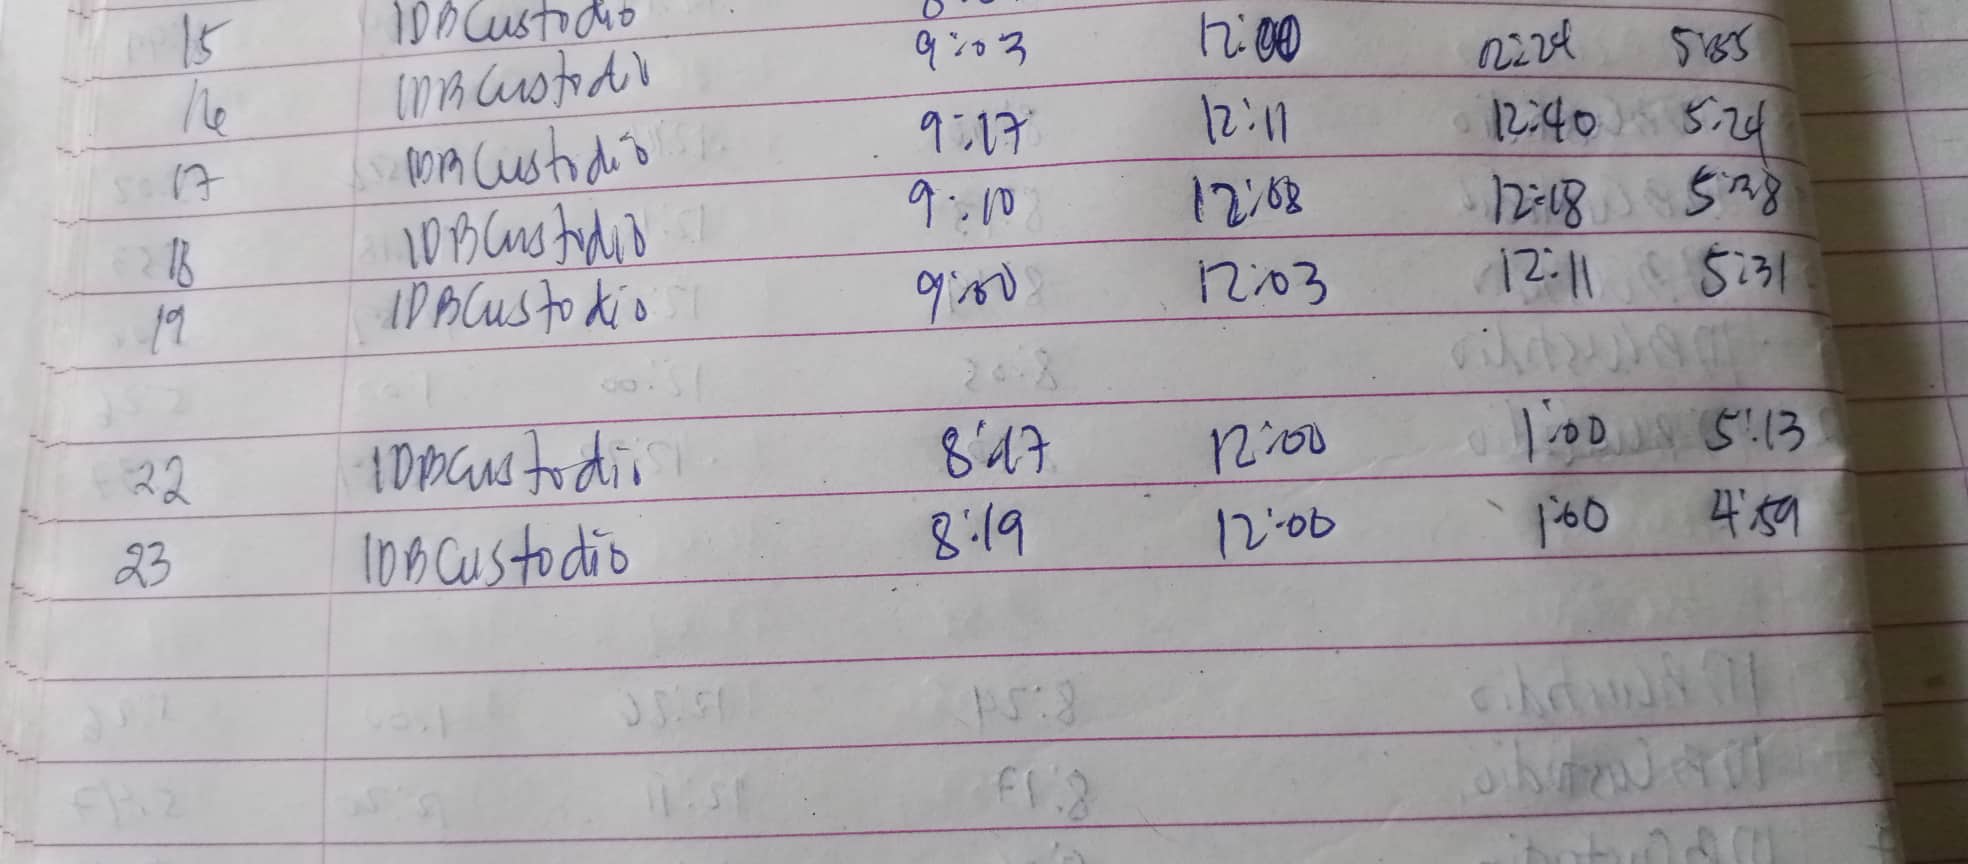 15 IDBCustodio
16 IDBCustodio 9:03 12:00 12:24
17 IDBCustodio 9:17 12:11 12:40 5:24
18 IDBCustodio 9:10 12:08 12:18 5:28
19 IDBCustodio 9:00 12:03 12:11 5:31
22 IDBCustodio 8:17 12:00 1:00 5:13
23 IDBCustodio 8:19 12:00 1:00 4:59